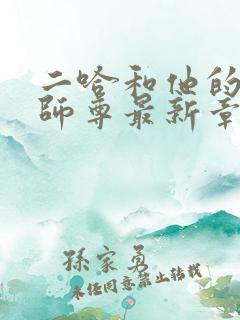 二哈和他的
師尊最新章
孫家勇
未经同意禁止转载